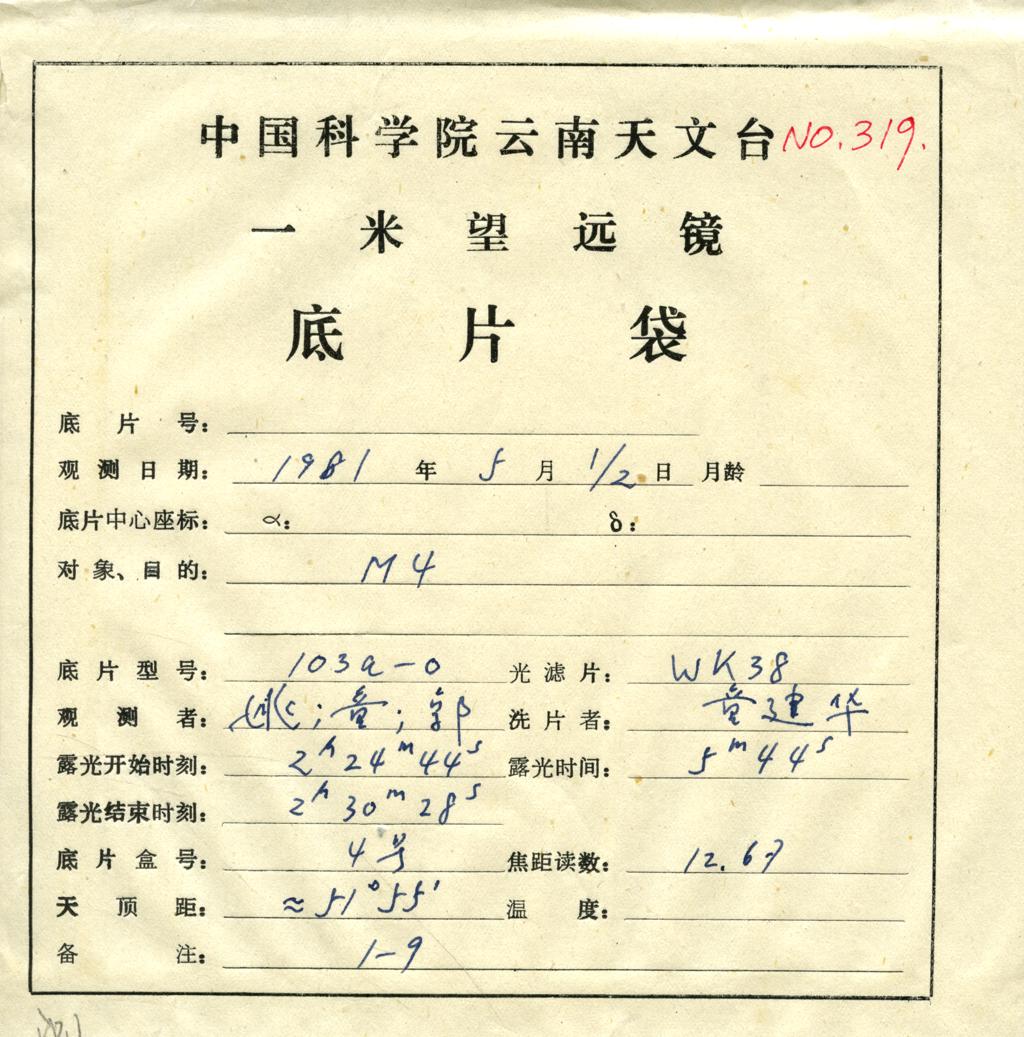 中国科学院云南天文台 NO.319.
一米望远镜
底片袋
底片号：
观测日期： 1981 年 5 月 1/2 日 月龄
底片中心座标： α： δ：
对象、目的： M4
底片型号： 103a-0 光滤片： WK38
观测者： ；童；郭 洗片者： 童建华
露光开始时刻： 2h24m44s 露光时间： 5m44s
露光结束时刻： 2h30m28s
底片盒号： 4号 焦距读数： 12.67
天顶距： ≈51°55' 温度：
备注： 1-9